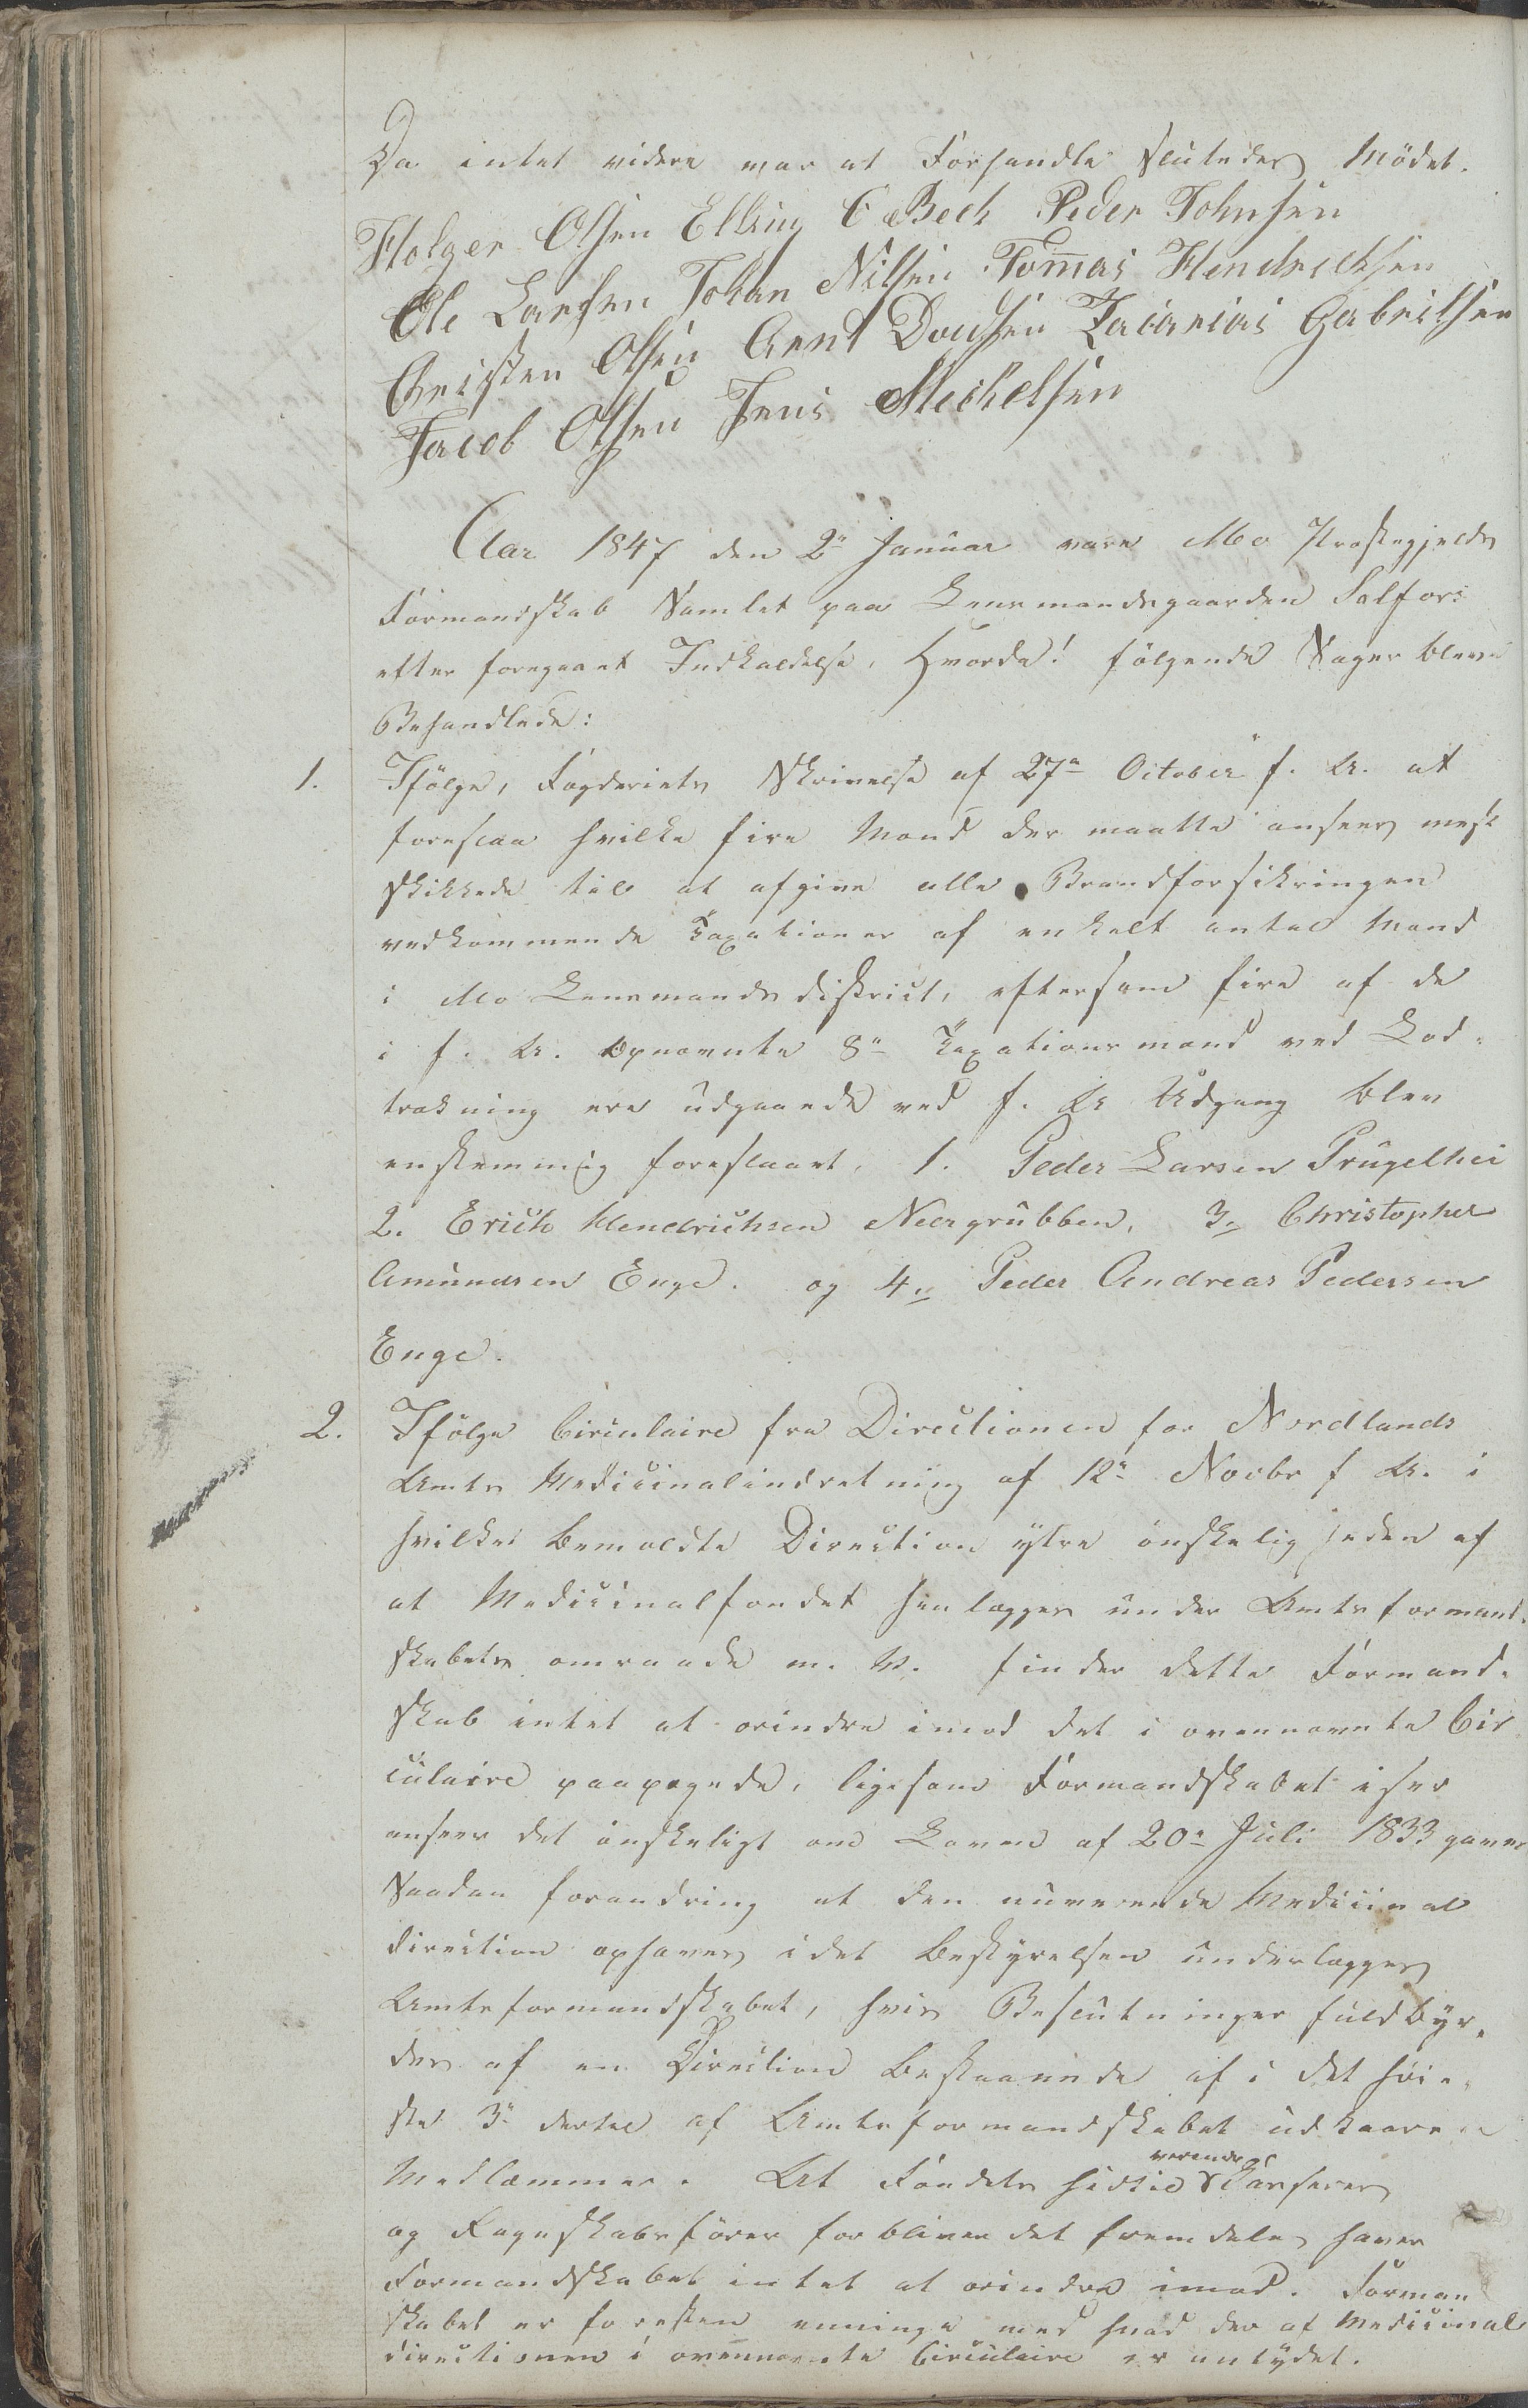 Da intet videre var at Forhandle sluttedes Mödet.
Holger Olsen Elling C Bech Peder Johnsen
Ole Larsen Johan Nilsen Tommas Hendrichsen
Christen Olsen Arnt Davisen Zacarias Gabrielsen
Jacob Olsen Jens Michelsen
Aar 1847 den 2n Januar vare Mo Præstegjelds
Formandskab Samlet paa Lensmandsgaarden Selfors
efter foregaaet Indkaldelse, Hvorda! følgende Sager bleve
Behandlede:
1. Ifölge, Fogderiets Skrivelse af 27n October f. A. at
foreslaa hvilke fire Mænd der maatte ansees mest
skikkede til at afgive alle Brandforsikringen
vedkommende Taxationer af enkelt antal Mænd
i Mo Lensmandsdistrict, eftersom fire af de
i f. A. Opnævnte 8n Taxationsmænd ved Lod-
trækning ere udgaaede ved f. A Udgang blev
enstemmig foreslaaet, 1. Peder Larsen Prugelhei
2. Erich Hendrichsen Nergrubben, 3n Christopher
Amundsen Enge. og 4n Peder Andreas Pedersen
Enge.
2. Ifölge Circulaire fra Directionen for Nordlands
Amts Medicinalindretning af 12n Novbr f A. i
hvilket bemældte Direction yttre önskelig heden af
at Medicinalfondet henlægges under Amtsformand-
skabets omraade m. V. finder dette Formand-
skab intet at erindre imod det i ovennævnte Cir
culaire paapegede, ligesom Formandskabet især
anseer det önskeligt om Loven af 20n Juli 1833 gaves
Saadan forandring at den nuværende Medicinal
direction ophæves idet Bestyrelsen underlægges
Amtsformandskabet, hvis Beslutninger fuldbyr-
des af en Direction bestaaende af i det höie-
ste 3n dertil af Amtsformandskabet udkaarede
Medlemmer. At Fondets hidtil værende Casserer
og Regnskabsförer forbliver det fremdeles haver
Formandskabet intet at erindre imod. Forman
skabet er foresten eenige med hvad der af Medicinal
directionen i ovennævnte Circulaire er antydet.